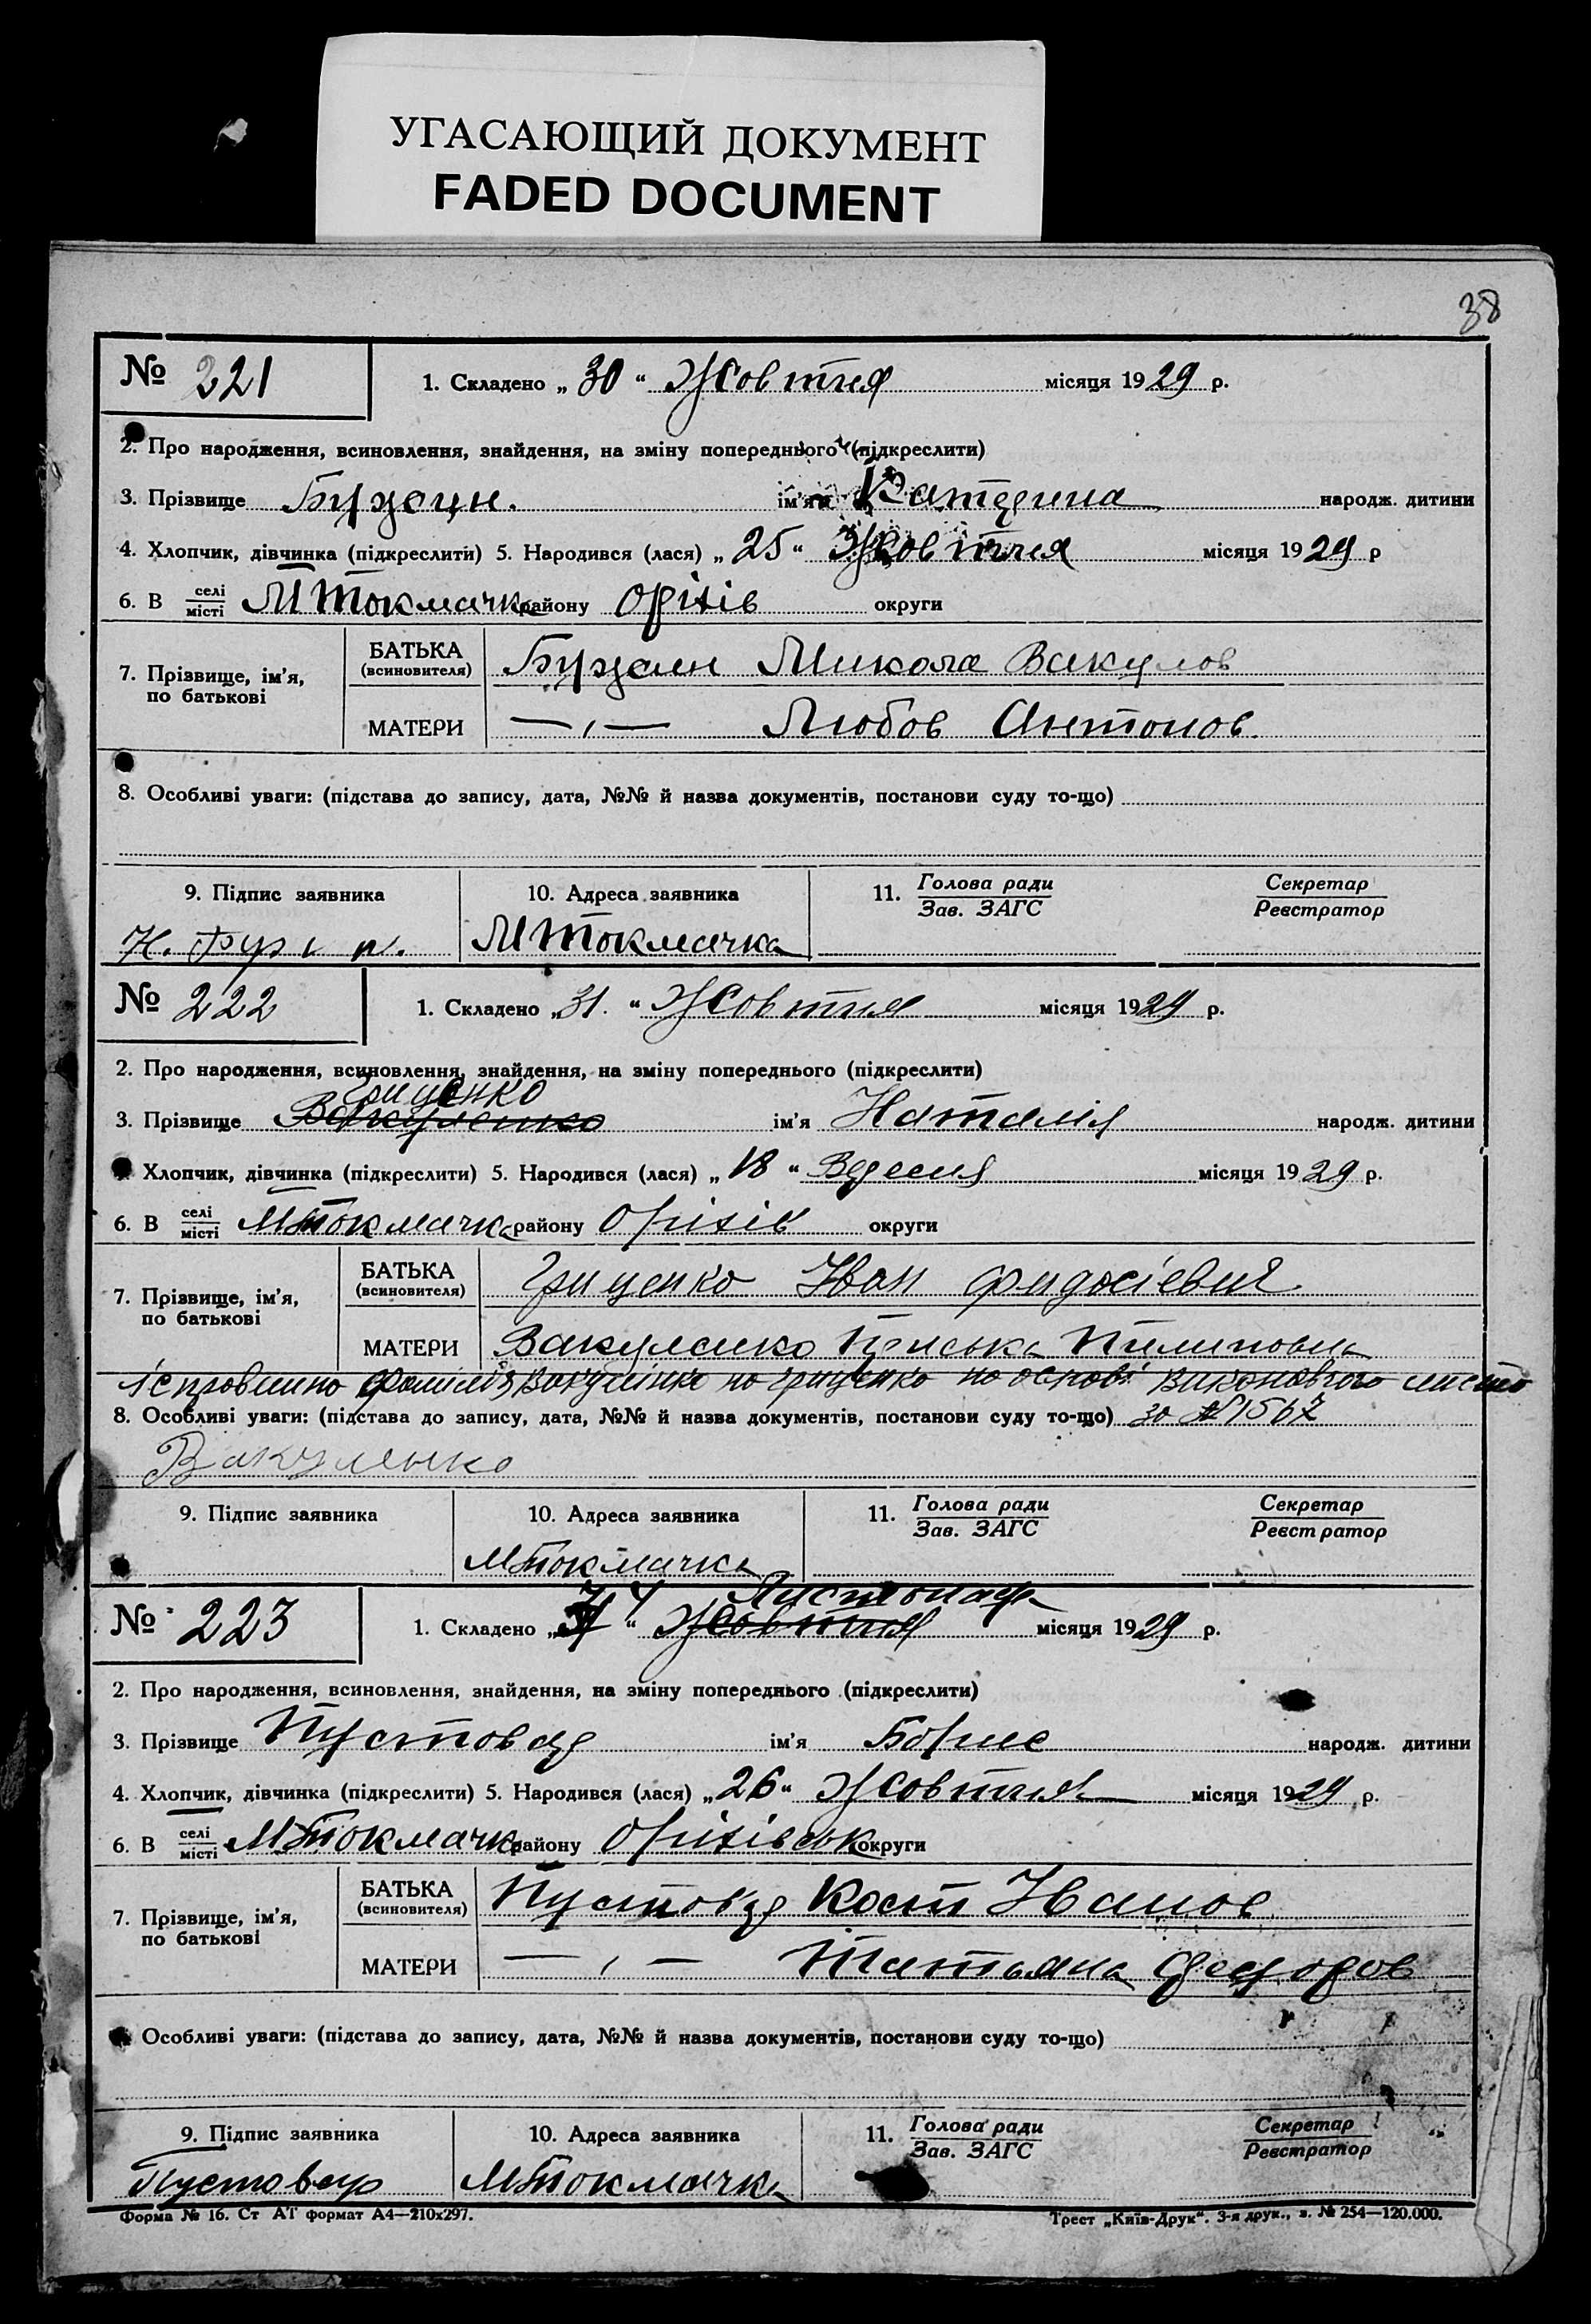 УГАСАЮЩИЙ ДОКУМЕНТ
FADED DOCUMENT
38
№ 221 1. Складено „ 30 “ Жовтня місяця 1929 р.
2. Про народження, всиновлення, знайдення, на зміну попереднього (підкреслити)
3. Прізвище ім'я Катерина народж. дитини
4. Хлопчик, дівчинка (підкреслити) 5. Народився (лася) „ 25 “ Жовтня місяця 1929 р
6. В селі/місті МТокмачка району Оріхів округи
7. Прізвище, ім'я, по батькові
БАТЬКА (всиновителя) Микола Вакулов
МАТЕРИ — „ — Любов Антонов.
8. Особливі уваги: (підстава до запису, дата, №№ й назва документів, постанови суду то-що)
9. Підпис заявника 10. Адреса заявника 11. Голова ради/Зав. ЗАГС Секретар/Реєстратор
МТокмачка
№ 222 1. Складено „31. “ Жовтня місяця 1929 р.
2. Про народження, всиновлення, знайдення, на зміну попереднього (підкреслити)
Гриценко
3. Прізвище Вакуленко ім'я Наталія народж. дитини
Хлопчик, дівчинка (підкреслити) 5. Народився (лася) „ 18 “ Вересня місяця 1929 р.
6. В селі/місті МТокмачка району Оріхів округи
7. Прізвище, ім'я, по батькові
БАТЬКА (всиновителя) Гриценко Иван Фидосіевич
МАТЕРИ Вакуленко Пилиповна
Ісправлино фамилія Вакулінко на Гриценко на основі виконавчого листа
8. Особливі уваги: (підстава до запису, дата, №№ й назва документів, постанови суду то-що) за № 1567
Вакуленко
9. Підпис заявника 10. Адреса заявника 11. Голова ради/Зав. ЗАГС Секретар/Реєстратор
МТокмачка
Листопада
№ 223 1. Складено „ “ Жовтня місяця 1929 р.
2. Про народження, всиновлення, знайдення, на зміну попереднього (підкреслити)
3. Прізвище Пустовар ім'я Борис народж. дитини
4. Хлопчик, дівчинка (підкреслити) 5. Народився (лася) „ 26 “ Жовтня місяця 1929 р.
6. В селі/місті МТокмачка району Оріхівськ округи
7. Прізвище, ім'я, по батькові
БАТЬКА (всиновителя) Кост Иванов
МАТЕРИ — „ — Татьяна Федоров
Особливі уваги: (підстава до запису, дата, №№ й назва документів, постанови суду то-що)
9. Підпис заявника 10. Адреса заявника 11. Голова ради/Зав. ЗАГС Секретар/Реєстратор
Пустовар МТокмачка
Форма № 16. Ст АТ формат А4—210х297. Трест „Київ-Друк“. 3-я друк., з. № 254—120.000.